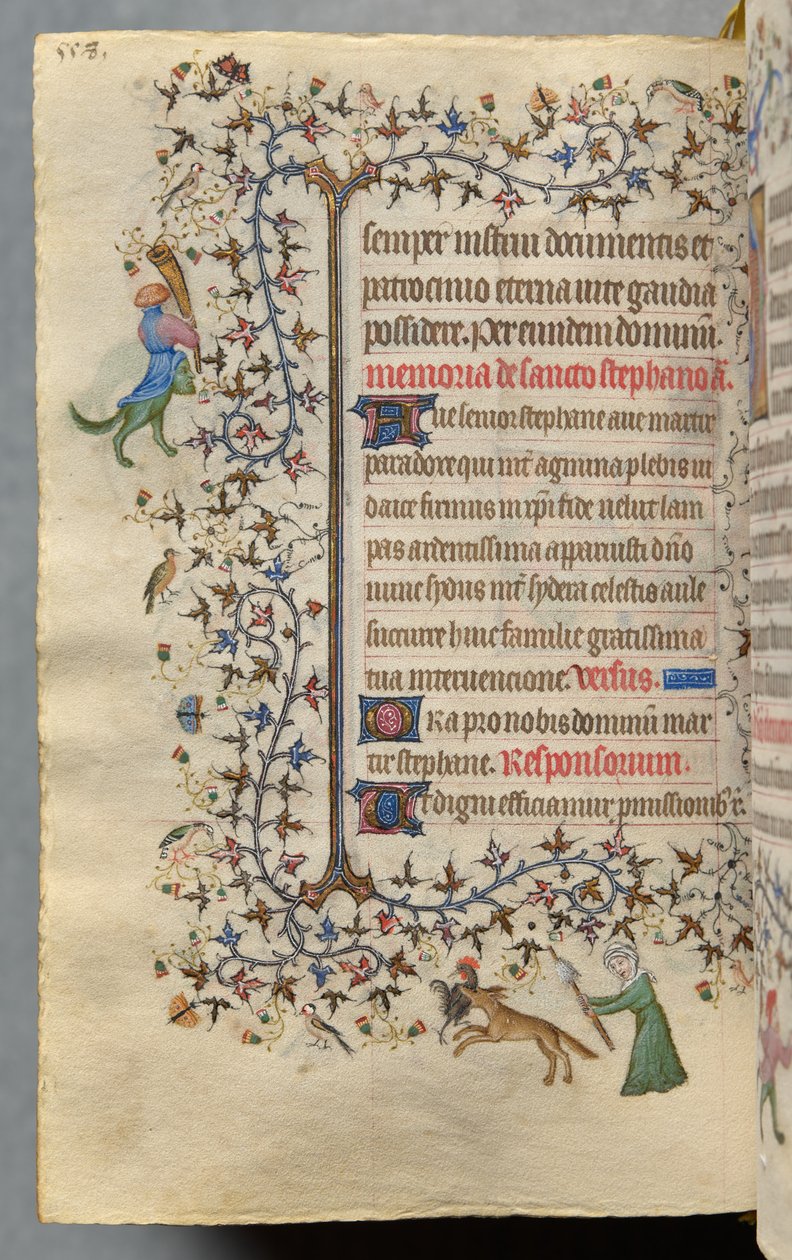 558.
semper instrui documentis et
patrocinio eterna uite gaudia
possidere. Per eundem dominū.
memoria de sancto stephano ā.
Aue senior stephane aue martir
paradoxe qui int̄ agmina plebis iu
daice firmus in xp̄i fide uelut lam
pas ardentissima apparuisti dño
nunc sydus int̄ sydera celestis aule
succurre huic familie gratissima
tua interuencione. Versus.
Ora pro nobis dominū mar
tir stephane. Responsorium.
Ut digni efficiamur